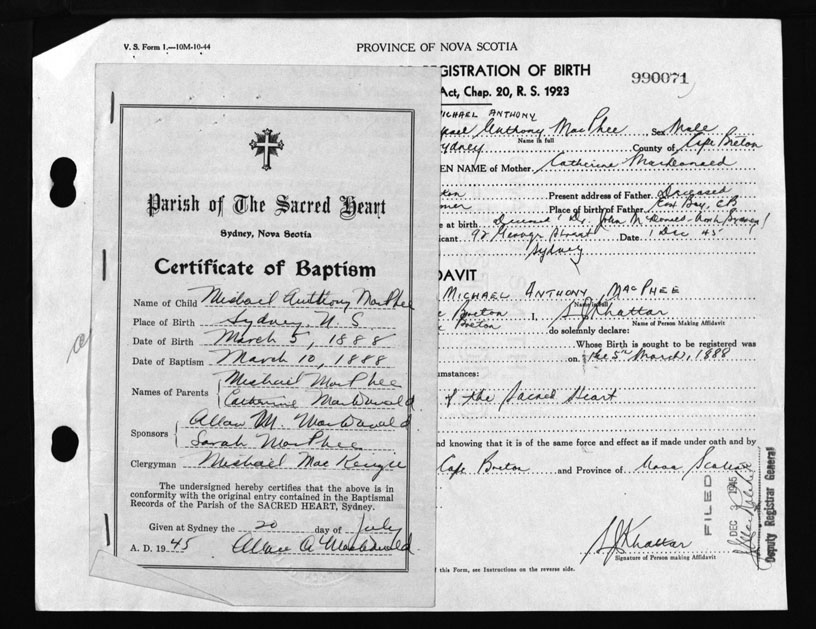 V. S. Form 1.—10M-10-44
PROVINCE OF NOVA SCOTIA
GISTRATION OF BIRTH
990071
Act, Chap. 20, R. S. 1923
Parish of The Sacred Heart
Sydney, Nova Scotia
Certificate of Baptism
Name of Child Michael Anthony MacPhee
Place of Birth Sydney, N. S.
Date of Birth March 5, 1888
Date of Baptism March 10, 1888
Names of Parents Michael MacPhee
Catherine MacDonald
Sponsors Allan M. MacDonald
Sarah MacPhee
Clergyman Michael MacKenzie
The undersigned hereby certifies that the above is in
conformity with the original entry contained in the Baptismal
Records of the Parish of the SACRED HEART, Sydney.
Given at Sydney the 20 day of July
A. D. 1945 Allan A. MacDonald
ICHAEL ANTHONY
hael Anthony MacPhee Sex Male
Name in full
ydney County of Cape Breton
EN NAME of Mother Catherine MacDonald
Present address of Father Deceased
Place of birth of Father East Bay, CB
e at birth Dr. John
icant 92 George Street Date 1 Dec 45
Sydney
DAVIT
MICHAEL ANTHONY MACPHEE
Name in full
Breton I, S J Khattar
Breton Name of Person Making Affidavit
do solemnly declare:
Whose Birth is sought to be registered was
on the 5th March, 1888
cumstances:
of the Sacred Heart
nd knowing that it is of the same force and effect as if made under oath and by
Cape Breton and Province of Nova Scotia
S J Khattar
Signature of Person making Affidavit
f this Form, see Instructions on the reverse side.
FILED
DEC 3 1945
Deputy Registrar General